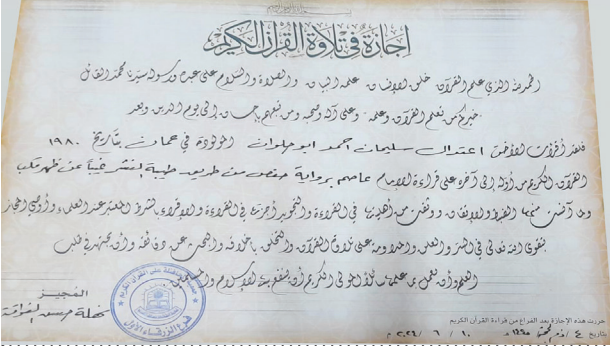 إجازة في تلاوة القرآن الكريم
الحمد لله الذي علم القرآن خلق الإنسان علمه البيان والصلاة والسلام على عبده ورسوله سيدنا محمد القائل
خيركم من تعلم القرآن وعلمه وعلى آله وصحبه ومن تبعهم بإحسان إلى يوم الدين وبعد
فلقد أقرأت الأخت اعتدال سليمان أحمد ابو حلوان المولودة في عمان بتاريخ ١٩٨٠
القرآن الكريم من أوله إلى آخره على قراءة الإمام عاصم برواية حفص من طريق طيبة النشر غيباً عن ظهر قلب
ولما آنست منها الضبط والإتقان ووثقت من أهليتها في القراءة والتجويد أجزتها في القراءة والإقراء بالشرط المعتبر عند العلماء وأوصي المجاز
بتقوى الله تعالى في السر والعلن والمداومة على تلاوة القرآن والتخلق بأخلاقه والبحث عن دقائقه وأن يجتهد في طلب
العلم وأن يعمل بما علم سائلا المولى الكريم أن ينفع به الإسلام والمسلمين
المجيز
فرع الزرقاء الأول
حررت هذه الإجازة بعد الفراغ من قراءة القرآن الكريم
بتاريخ ٤ / ذو الحجة /